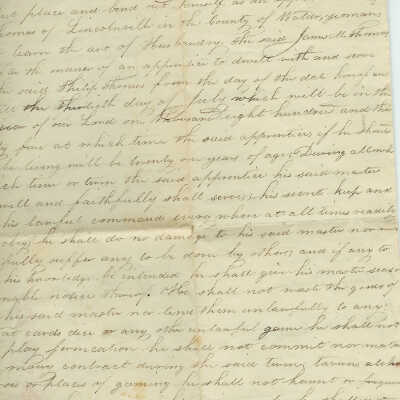 place and bend
homes of Lincolnville in the County of Waldo, yeoman
learn the art of Husbandry, the said James M Thomas
as the maner of an apprentice to dwell with and serve
the said Philip Thomas from the day of the date hereof un
till the thirtieth day of July which will be in the
year of our Lord one thousand eight hundred and thir
ty four at which time the said apprentice if he shall
be living will be twenty one years of age, During all wh
ch time or term the said apprentice his said master
well and faithfully shall serve, his secrets keep and
his lawful commands every where at all times readily
obey; he shall do no damage to his said master nor wil
fully suffer any to be done by others; and if any to
his knowledge be intended he shall give his master seaso
nable notice thereof. He shall not waste the goods of
his said master nor lend them unlawfully to any:
at cards dice or any other unlawful game he shall not
play fornication he shall not commit nor matri
mony contract during the said term; taverns ale ho
ses or places of gaming he shall not haunt or frequen